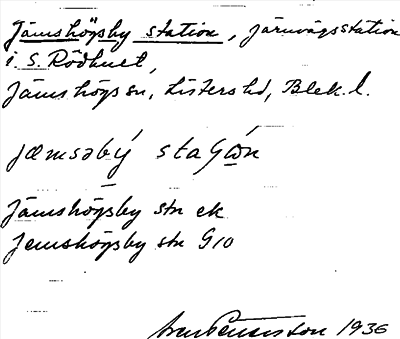 Jämshögsby station, järnvägsstation
i S. Rödhult,
Jämshögs sn, Listers hd, Blek. l.
Jämshögsby stn ek
Jemshögsby stn G10
1936